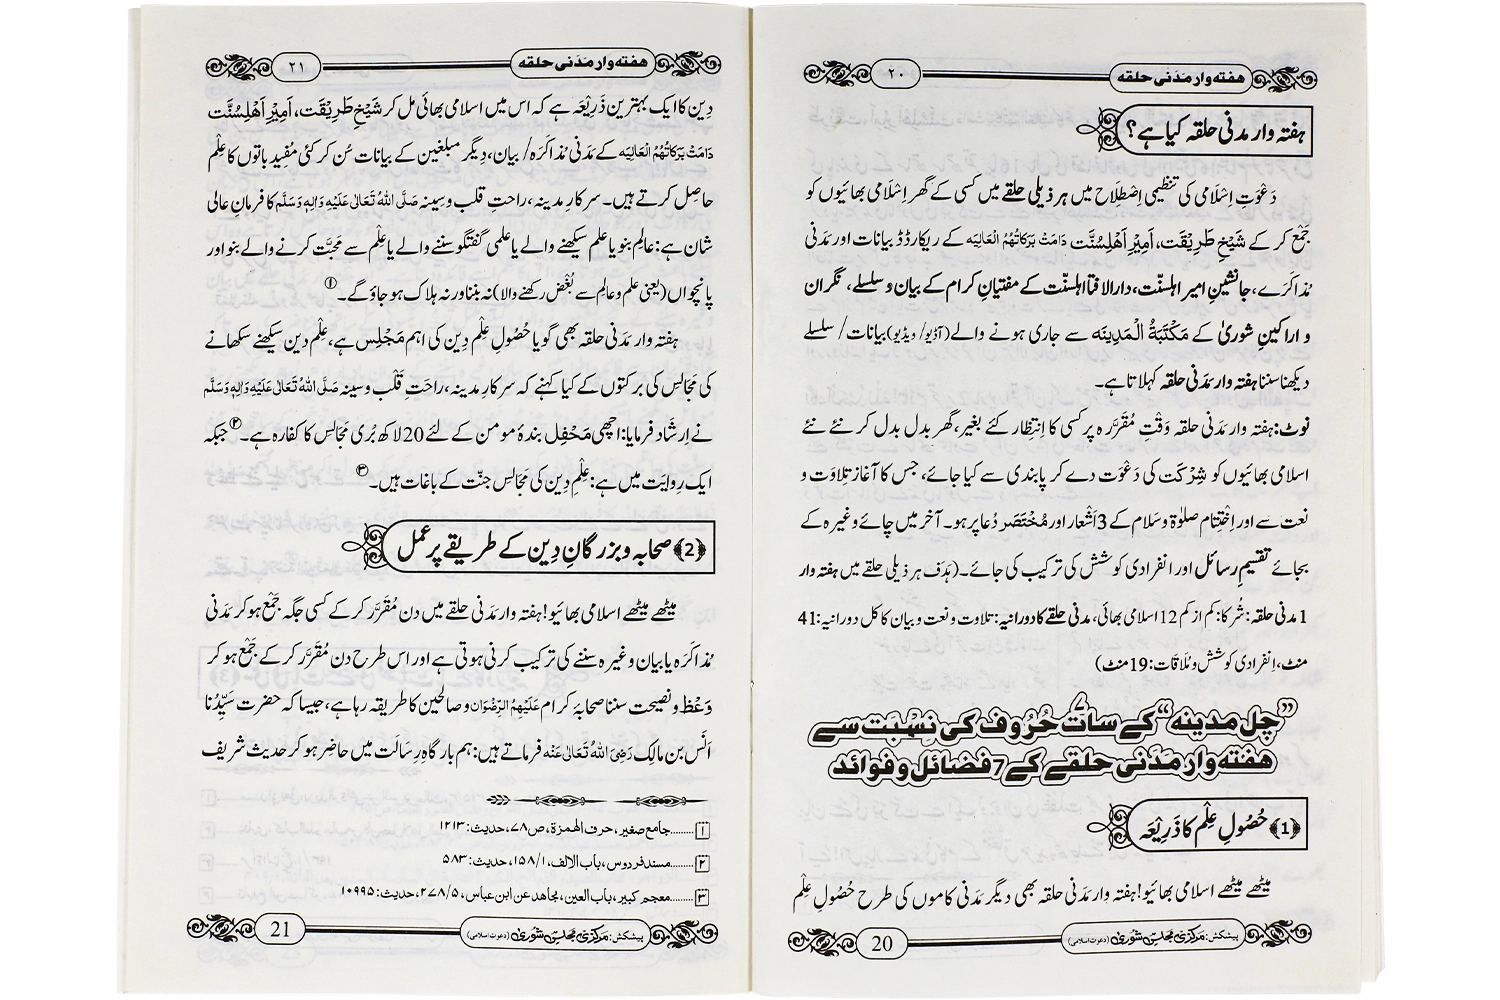 هفته وار مَدَنی حلقه
۲۰
ہفتہ وار مدنی حلقہ کیا ہے؟
دَعْوَتِ اِسْلَامی کی تنظیمی اِصْطِلَاح میں ہر ذیلی حلقے میں کسی کے گھر اِسْلَامی بھائیوں کو
جَمْع کر کے شَیْخِ طَرِیْقَت، اَمِیْرِ اَهْلِسُنَّت دَامَتْ بَرَكَاتُهُمُ الْعَالِيَه کے ریکارڈڈ بیانات اور مَدَنی
مُذاکَرے، جانشینِ امیرِ اہلسنّت، دارالافتا اہلسنّت کے مفتیانِ کرام کے بیان و سلسلے، نگران
و اراکینِ شوریٰ کے مَكْتَبَةُ الْمَدِيْنَه سے جاری ہونے والے (آڈیو/ ویڈیو) بیانات/ سلسلے
دیکھنا سننا ہفتہ وار مَدَنی حلقہ کہلاتا ہے۔
نوٹ: ہفتہ وار مَدَنی حلقہ وَقْتِ مُقَرَّرہ پر کسی کا اِنتِظار کئے بغیر، گھر بدل بدل کر نئے نئے
اسلامی بھائیوں کو شِرکَت کی دَعْوَت دے کر پابندی سے کیا جائے، جس کا آغاز تِلاوَت و
نعت سے اور اِخْتِتام صلوٰۃ و سَلَام کے 3 اَشْعار اور مُخْتَصَر دُعا پر ہو۔ آخر میں چائے وغیرہ کے
بجائے تقسیمِ رسائل اور انفرادی کوشش کی ترکیب کی جائے۔ (ہَدَف ہر ذیلی حلقے میں ہفتہ وار
1 مدنی حلقہ: شُرکا: کم از کم 12 اسلامی بھائی، مدنی حلقے کا دورانیہ: تلاوت و نعت و بیان کا کل دورانیہ: 41
منٹ، اِنفرادی کوشش و مُلَاقات: 19 منٹ)
”چل مدینه“ کے سات حُرُوف کی نِسْبَت سے
هفته وار مَدَنی حلقے کے 7 فضائل و فوائد
﴿1﴾ حُصُولِ عِلْم کا ذَرِیْعَہ
میٹھے میٹھے اسلامی بھائیو! ہفتہ وار مَدَنی حلقہ بھی دیگر مَدَنی کاموں کی طرح حُصُولِ عِلْمِ
پیشکش: مرکزی مجلسِ شوریٰ (دعوتِ اسلامی)
20
هفته وار مَدَنی حلقه
۲۱
دِین کا ایک بہترین ذَرِیْعَہ ہے کہ اس میں اسلامی بھائی مل کر شَیْخِ طَرِیْقَت، اَمِیْرِ اَهْلِسُنَّت
دَامَتْ بَرَكَاتُهُمُ الْعَالِيَه کے مَدَنی مُذاکَرہ/ بیان، دِیگر مبلغین کے بیانات سُن کر کئی مُفید باتوں کا عِلْم
حاصِل کرتے ہیں۔ سرکارِ مدینہ، راحتِ قلب و سینہ صَلَّى اللهُ تَعَالٰى عَلَيْهِ وَاٰلِهٖ وَسَلَّم کا فرمانِ عالی
شان ہے: عالِم بنو یا علم سیکھنے والے یا علمی گفتگو سننے والے یا عِلْم سے مَحَبَّت کرنے والے بنو اور
پانچواں (یعنی علم و عالِم سے بُغْض رکھنے والا) نہ بننا ورنہ ہلاک ہو جاؤ گے۔ ①
ہفتہ وار مَدَنی حلقہ بھی گویا حُصُولِ عِلْمِ دِین کی اہم مَجْلِس ہے، عِلْمِ دین سیکھنے سکھانے
کی مَجَالِس کی برکتوں کے کیا کہنے کہ سرکارِ مدینہ، راحَتِ قَلْب و سینہ صَلَّى اللهُ تَعَالٰى عَلَيْهِ وَاٰلِهٖ وَسَلَّم
نے اِرشاد فرمایا: اچھی مَحْفِل بندۂ مومن کے لئے 20 لاکھ بُری مَجَالِس کا کفارہ ہے۔ ② جبکہ
ایک رِوایَت میں ہے: عِلْمِ دِین کی مَجَالِس جنّت کے باغات ہیں۔ ③
﴿2﴾ صحابہ و بزرگانِ دِین کے طریقے پر عمل
میٹھے میٹھے اسلامی بھائیو! ہفتہ وار مَدَنی حلقے میں دن مُقَرَّر کر کے کسی جگہ جَمْع ہو کر مَدَنی
مُذاکَرہ یا بیان وغیرہ سننے کی ترکیب کرنی ہوتی ہے اور اس طرح دن مُقَرَّر کر کے جَمْع ہو کر
وَعْظ و نصیحت سننا صحابۂ کرام عَلَيْهِمُ الرِّضْوَان و صالحین کا طریقہ رہا ہے، جیسا کہ حضرت سَیِّدُنا
اَنَس بن مالِک رَضِىَ اللهُ تَعَالٰى عَنْه فرماتے ہیں: ہم بارگاہِ رِسالَت میں حاضِر ہو کر حدیث شریف
۱ ...... جامع صغیر، حرف الهمزة، ص ۷۸، حدیث: ۱۲۱۳
۲ ...... مسند فردوس، باب الالف، ۱/ ۱۵۸، حدیث: ۵۸۳
۳ ...... معجم کبیر، باب العین، مجاهد عن ابن عباس، ۵/ ۲۷۸، حدیث: ۱۰۹۹۵
پیشکش: مرکزی مجلسِ شوریٰ (دعوتِ اسلامی)
21